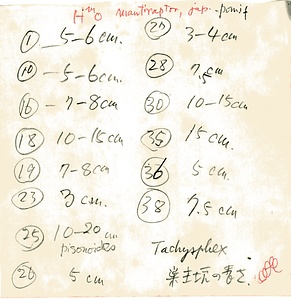 mantiraptor, jap.
① 5-6 cm.
⑩ -5-6 cm.
⑯ -7-8 cm
⑱ 10-15 cm
⑲ 7-8 cm
㉓ 3 cm.
㉕ 10-20 cm
pisonoides
㉖ 5 cm
㉗ 3-4 cm
㉘ 7.5 cm
㉚ 10-15 cm
㉟ 15 cm.
㊱ 5 cm
㊳ 7.5 cm
Tachysphex
巣坑の長さ